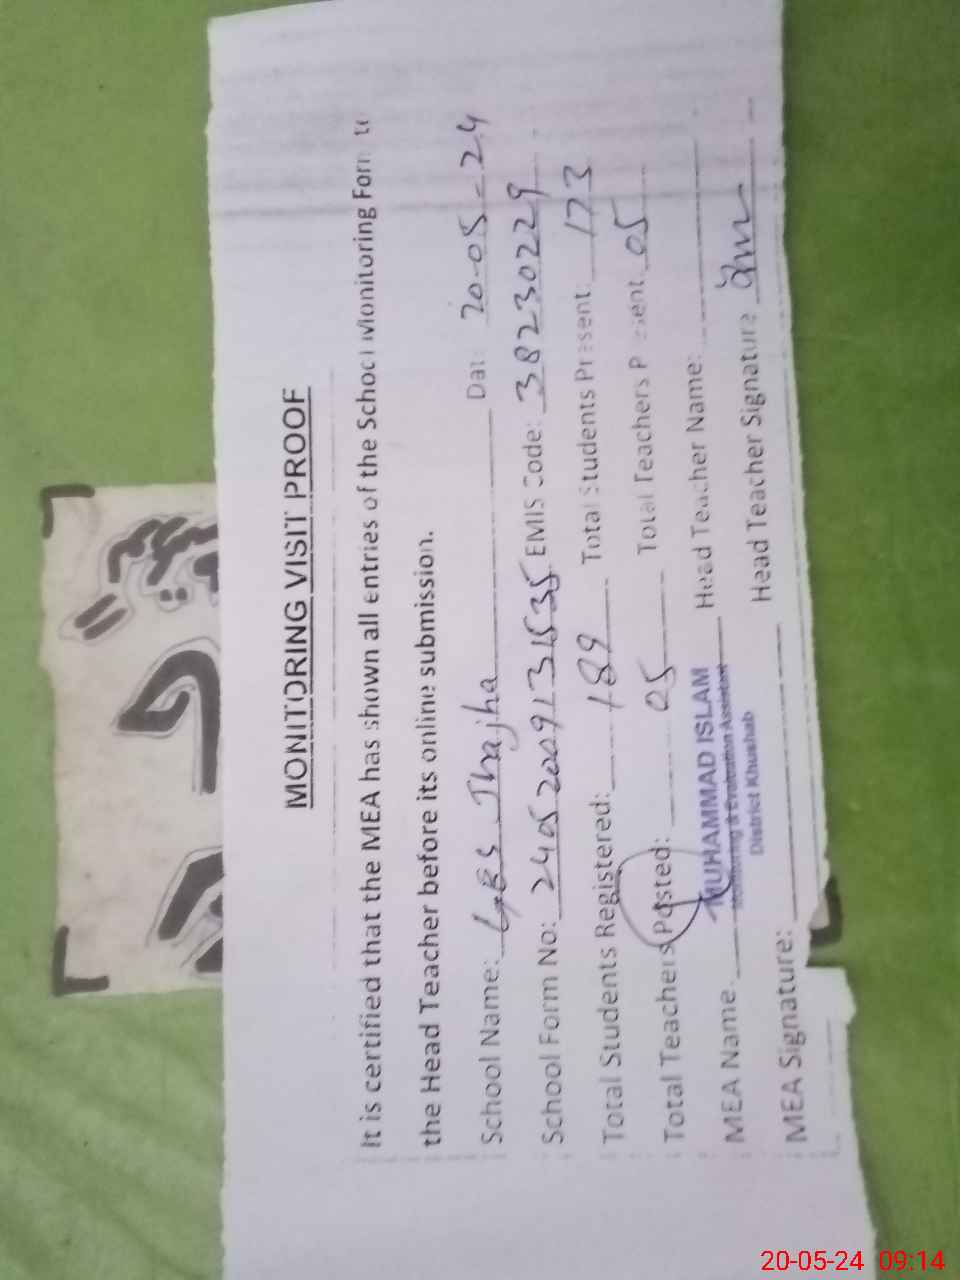 MONITORING VISIT PROOF
It is certified that the MEA has shown all entries of the School Monitoring Form to
the Head Teacher before its online submission.
School Name: GES Jhajha Date: 20-05-24
School Form No: EMIS Code: 38230229
Total Students Registered: 189 Total Students Present: 173
Total Teachers Posted: 05 Total Teachers Present: 05
MEA Name: MUHAMMAD ISLAM Head Teacher Name:
Monitoring & Evaluation Assistant
District Khushab
MEA Signature: Head Teacher Signature
20-05-24 09:14